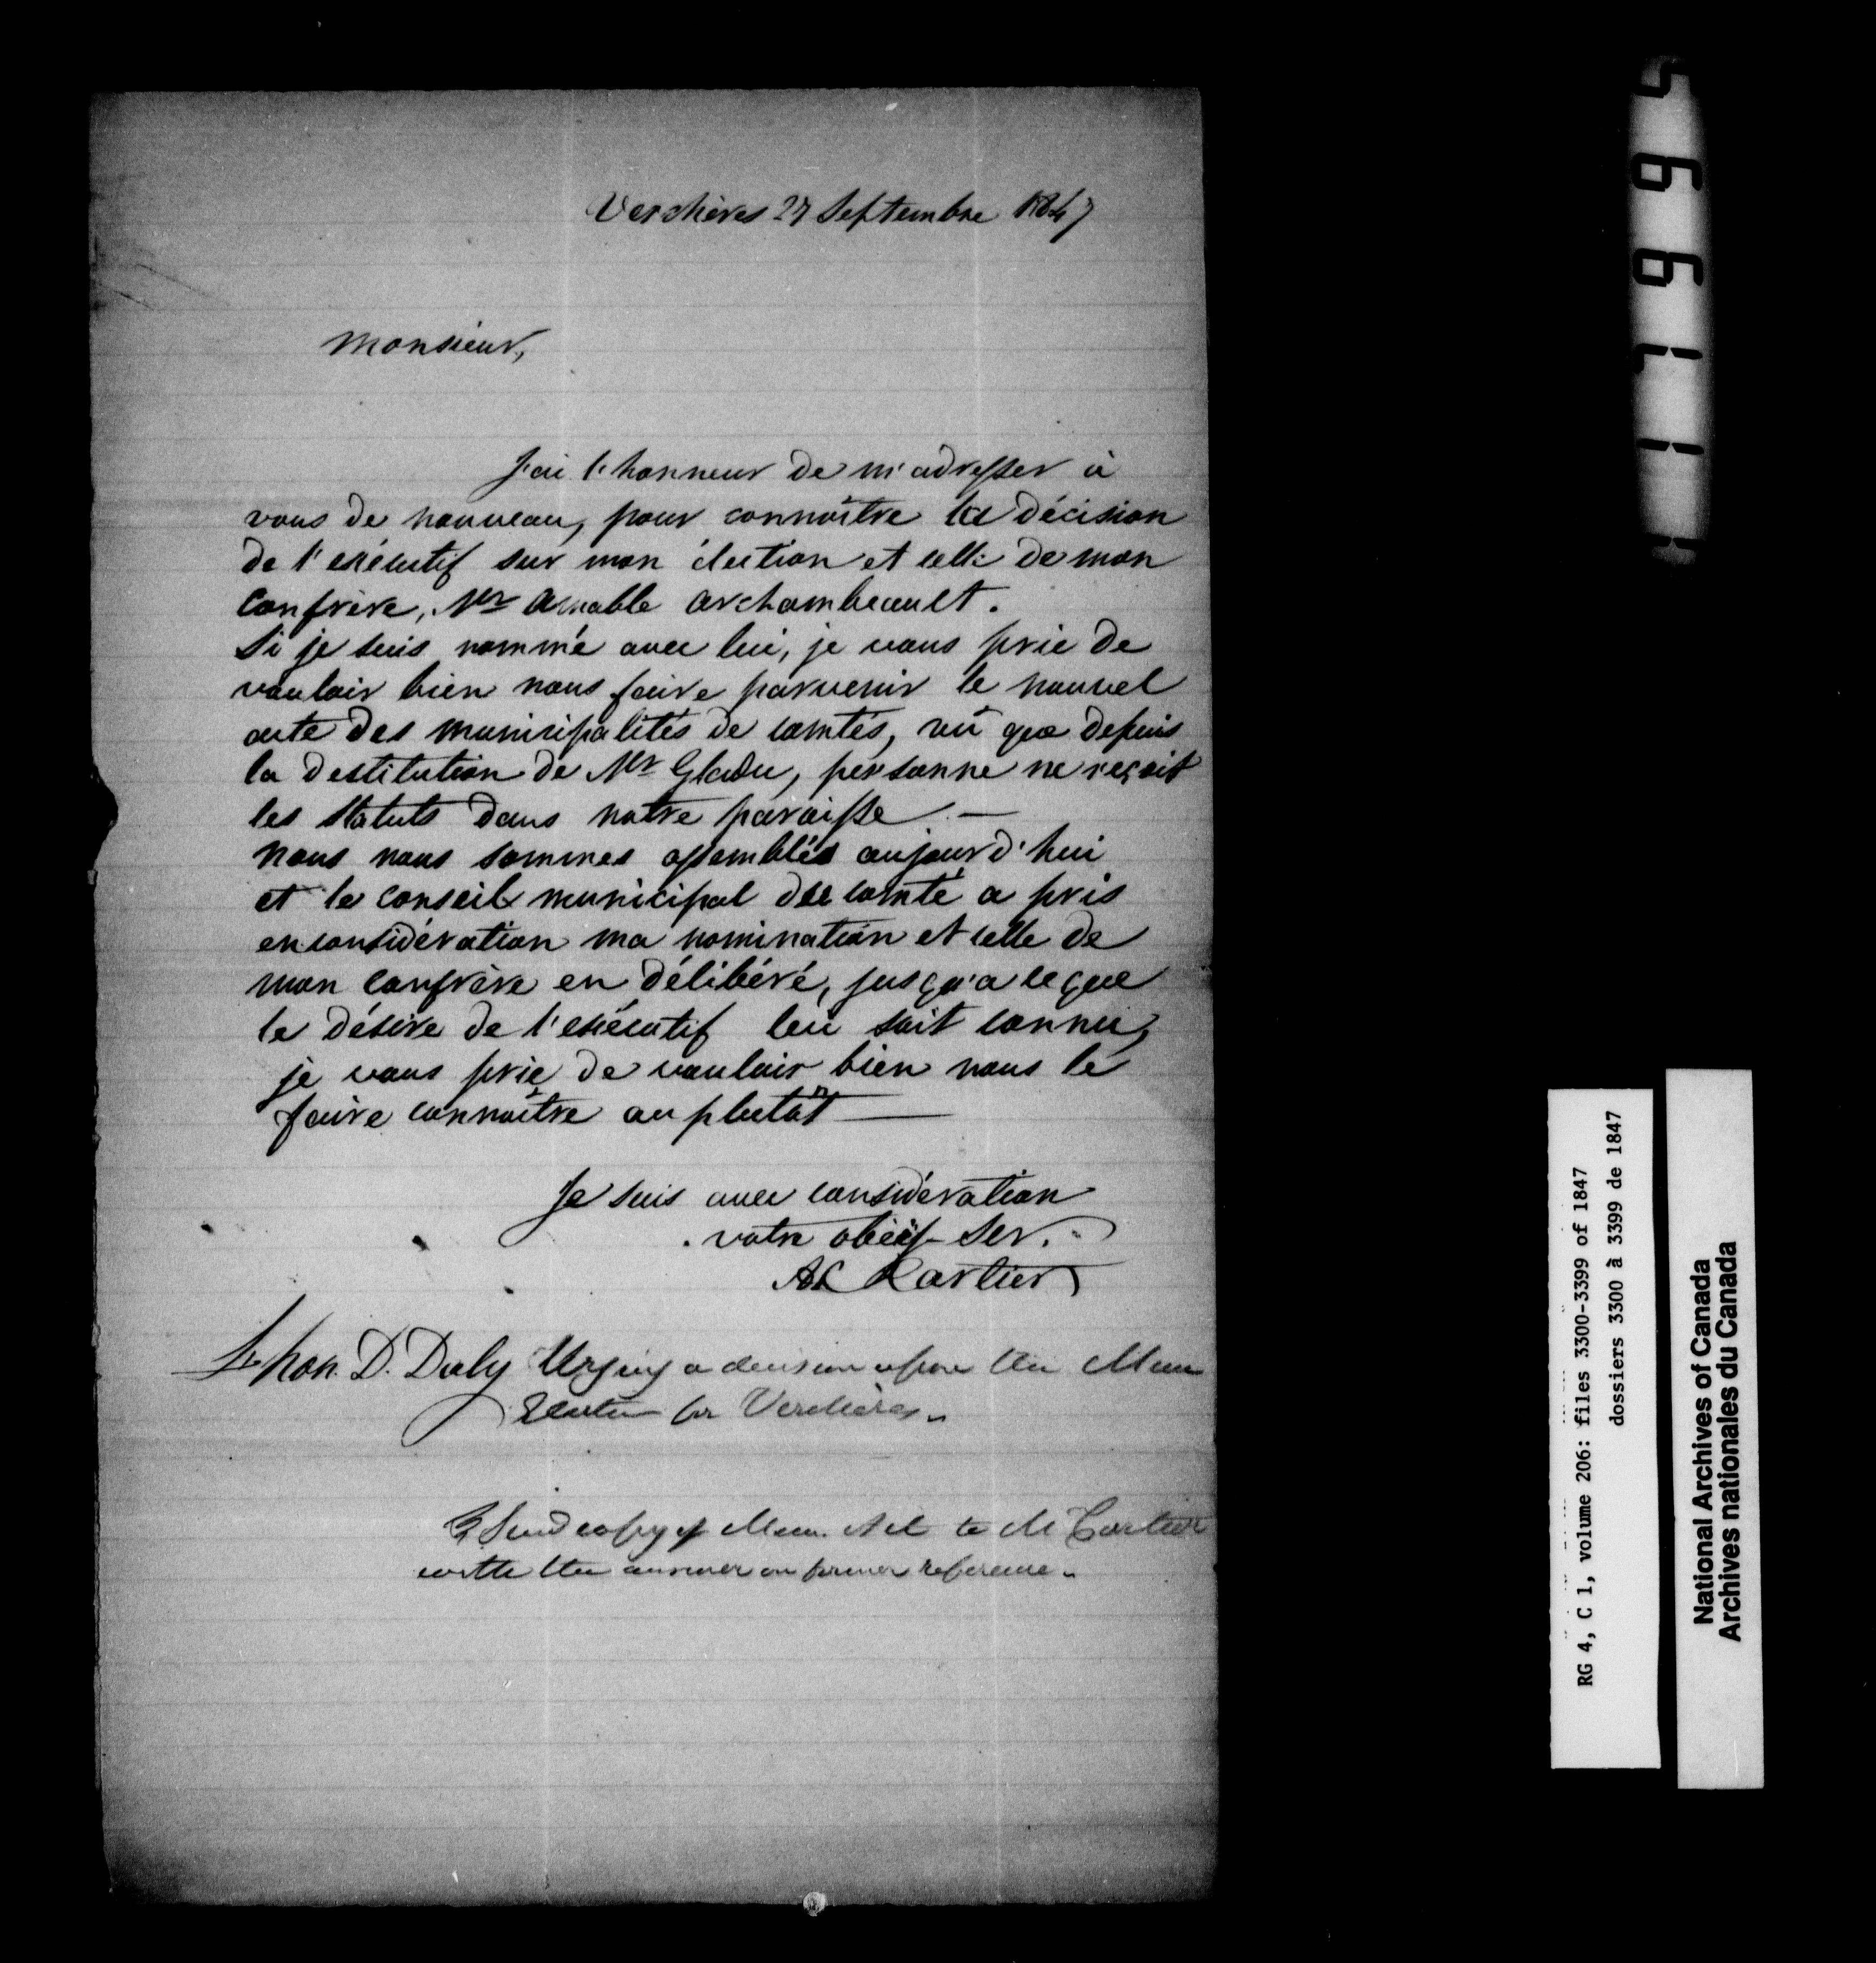 Verchères 27 Septembre 1847
Monsieur,
J'ai l'honneur de m'adresser à
vous de nouveau, pour connoître la décision
de l'exécutif sur mon élection et celle de mon
Confrère, Mr Amable Archambeault.
Si je suis nommé avec lui, je vous prie de
vouloir bien nous faire parvenir le nouvel
acte des municipalités de comtés, vû que depuis
la destitution de Mr Gladu, personne ne reçoit
les statuts dans notre paroisse. —
nous nous sommes assemblés aujourd'hui
et le conseil municipal du comté a pris
en considération ma nomination et celle de
mon confrère en délibéré, jusqu'a ce que
le désire de l'exécutif lui soit connu,
je vous prie de vouloir bien nous le
faire connoître au plutôt —
Je suis avec considération
votre obéis- Ser.
Ac Cartier
L'hon. D. Daly
Urging a decision upon the Mun
Election for Verchères.
Send copy of Mun. Act to M Cartier
with the answer on former reference.
5
6
6
1
1
RG 4, C 1, volume 206: files 3300-3399 of 1847
dossiers 3300 à 3399 de 1847
National Archives of Canada
Archives nationales du Canada